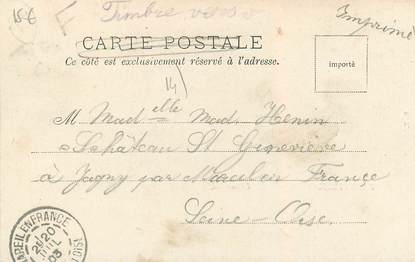 15€ F Timbre verso Imprimé
CARTE POSTALE
Ce côté est exclusivement réservé à l'adresse.
importé
14
M Mad elle Mad. Henin
Schâteau St Geneviève
à Jagny par Mareil en France
Seine-Oise.
MAREIL EN FRANCE
20
03
OISE